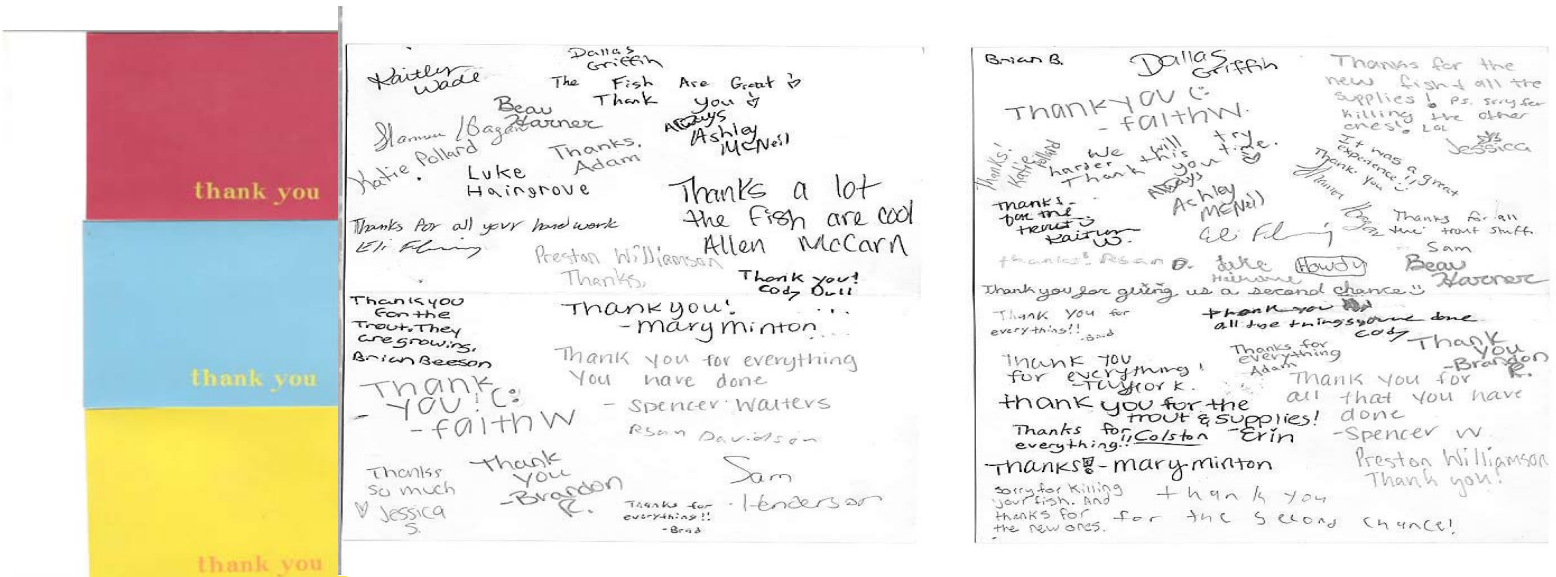 thank you
thank you
thank you
Kaitlyn
Wade
Dallas
Griffin
The Fish Are Great
Thank you
Beau
Harner
Always
Ashley
McNeil
Katie Pollard
Luke
Haingrove
Thanks,
Adam
Thanks a lot
the fish are cool
Allen McCarn
Thanks for all your hard work
Preston Williamson
Thanks,
Thank you!
Cody Dull
Thank you
for the
Trout. They
are growing.
Brian Beeson
Thank you!
-mary minton
Thank you for everything
You have done
- Spencer Walters
Thank
you! C:
-faith W
Ryan Davidson
Thanks
so much
♡ Jessica
S.
Thank
you
-Brandon
R.
Thanks for
everything!!
-Brad
Sam
Henderson
Brian B.
Dallas
Griffin
Thank you C:
- faith W.
Thanks for the
new fish & all the
supplies! P.S. sorry for
killing the other
ones! LOL
Jessica
Thanks!
Katie Pollard
We will try
harder this time.
Thank you
Always
Ashley
McNeil
It was a great
experience!!
Thank you
Thanks
for the
trout
Kaitlyn
W.
Thanks for all
the trout stuff.
- Sam
thanks! Ryan D.
Luke
Haingrove
Howdy
Beau
Harner
Thank you for giving us a second chance
Thank you for
everything!!
-Brad
thank you
all the things you've done
Cody
Thank you
for everything!
-Taylor K.
Thanks for
everything
Adam
Thank
you
-Brandon
R.
thank you for the
trout & supplies!
-Erin
Thank you for
all that you have
done
-Spencer W
Thanks for
everything!! Colston
Thanks! -mary minton
Preston Williamson
Thank you!
sorry for killing
your fish. And
thanks for
the new ones.
thank you
for the second chance!